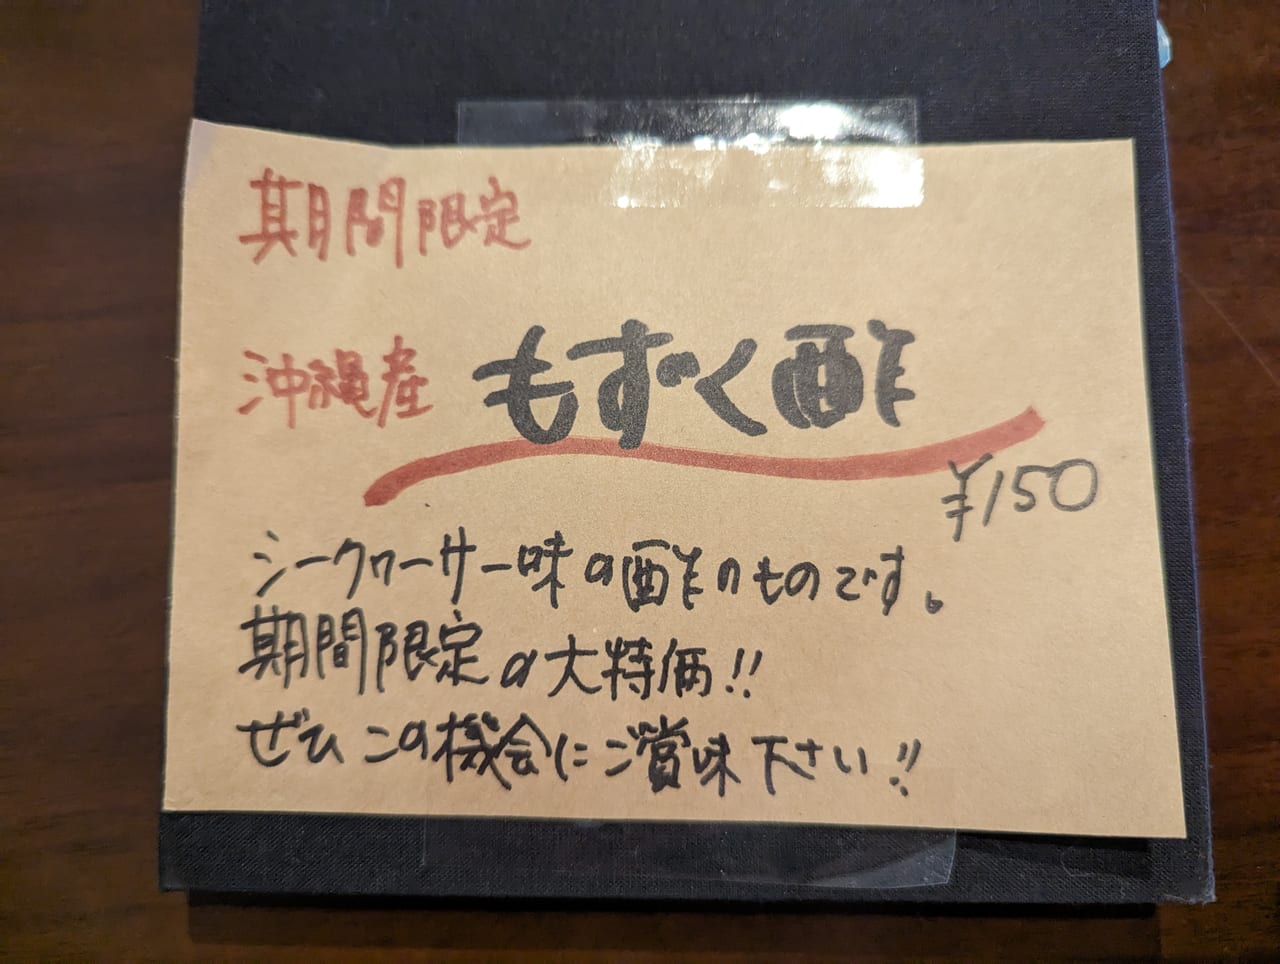 期間限定
沖縄産 もずく酢
¥150
シークワーサー味の酢のものです。
期間限定の大特価!!
ぜひこの機会にご賞味下さい!!